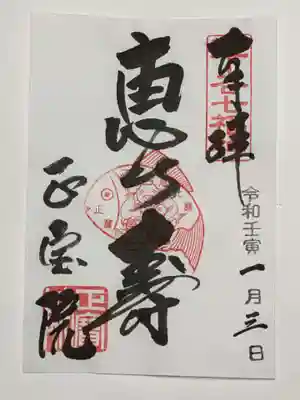 奉拝
令和壬寅一月三日
恵比寿
正宝院